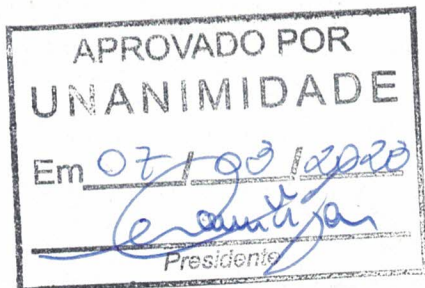 APROVADO POR
UNANIMIDADE
Em 07 / 03 / 2023
Presidente